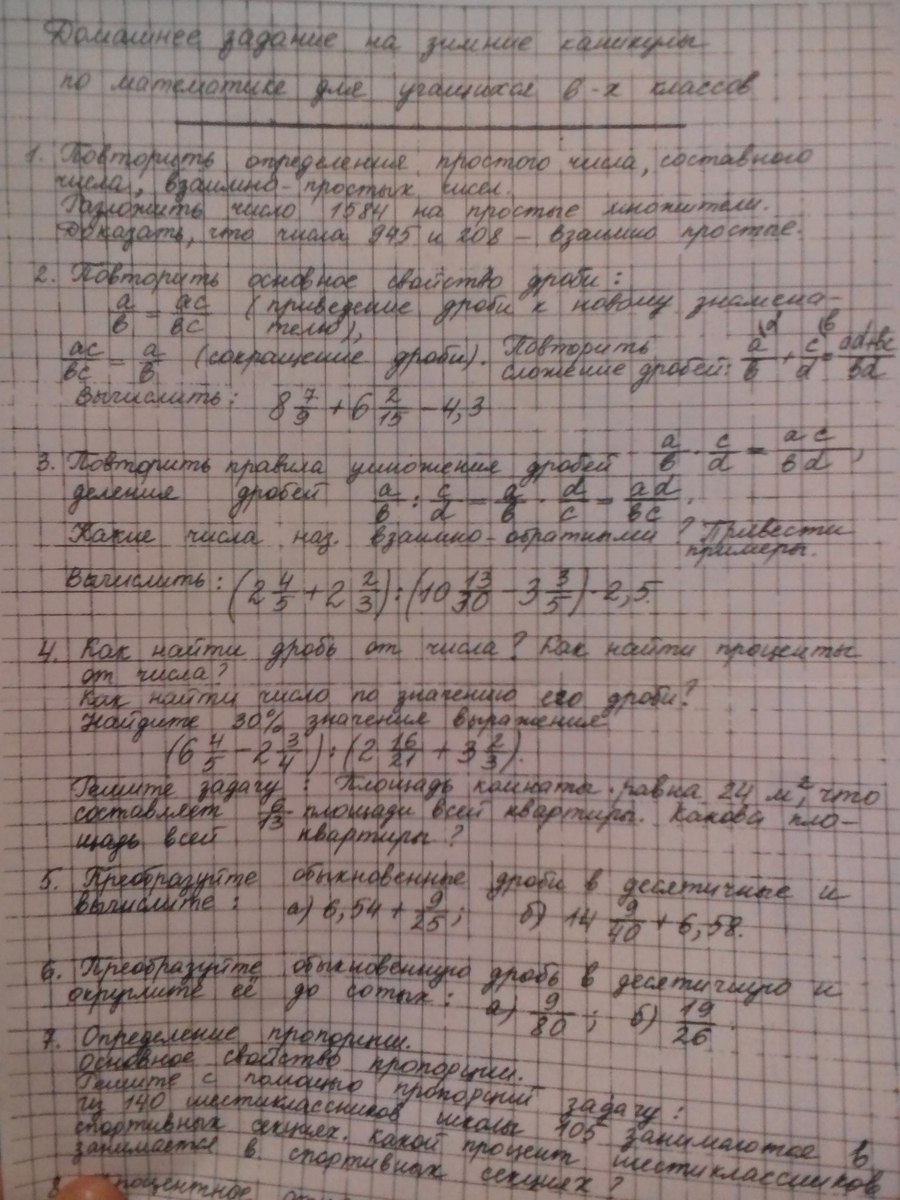 Домашнее задание на зимние каникулы
по математике для учащихся 6-х классов
1. Повторить определения простого числа, составного
числа, взаимно-простых чисел.
Разложить число 1584 на простые множители.
Доказать, что числа 945 и 208 – взаимно простые.
2. Повторить основное свойство дроби:
a/b = ac/bc (приведение дроби к новому знамена-
телю),
ac/bc = a/b (сокращение дроби). Повторить
сложение дробей: a/b + c/d = ad+bc/bd
Вычислить: 8 7/9 + 6 2/15 – 4,3
3. Повторить правила умножения дробей – a/b · c/d = ac/bd,
деления дробей a/b : c/d = a/b · d/c = ad/bc.
Какие числа наз. взаимно-обратными? Привести
примеры.
Вычислить: (2 4/5 + 2 2/3) : (10 13/30 – 3 3/5) · 2,5.
4. Как найти дробь от числа? Как найти проценты
от числа?
Как найти число по значению его дроби?
Найдите 30% значения выражения
(6 4/5 – 2 3/4) : (2 16/21 + 3 2/3).
Решите задачу: Площадь комнаты равна 24 м², что
составляет 6/13 площади всей квартиры. Какова пло-
щадь всей квартиры?
5. Преобразуйте обыкновенные дроби в десятичные и
вычислите: а) 6,54 + 9/25; б) 14 9/40 + 6,58.
6. Преобразуйте обыкновенную дробь в десятичную и
округлите её до сотых: а) 9/80; б) 19/26.
7. Определение пропорции.
Основное свойство пропорции.
Решите с помощью пропорций задачу:
Из 140 шестиклассников школы 105 занимаются в
спортивных секциях. Какой процент шестиклассников
занимается в спортивных секциях?
8. Процентное